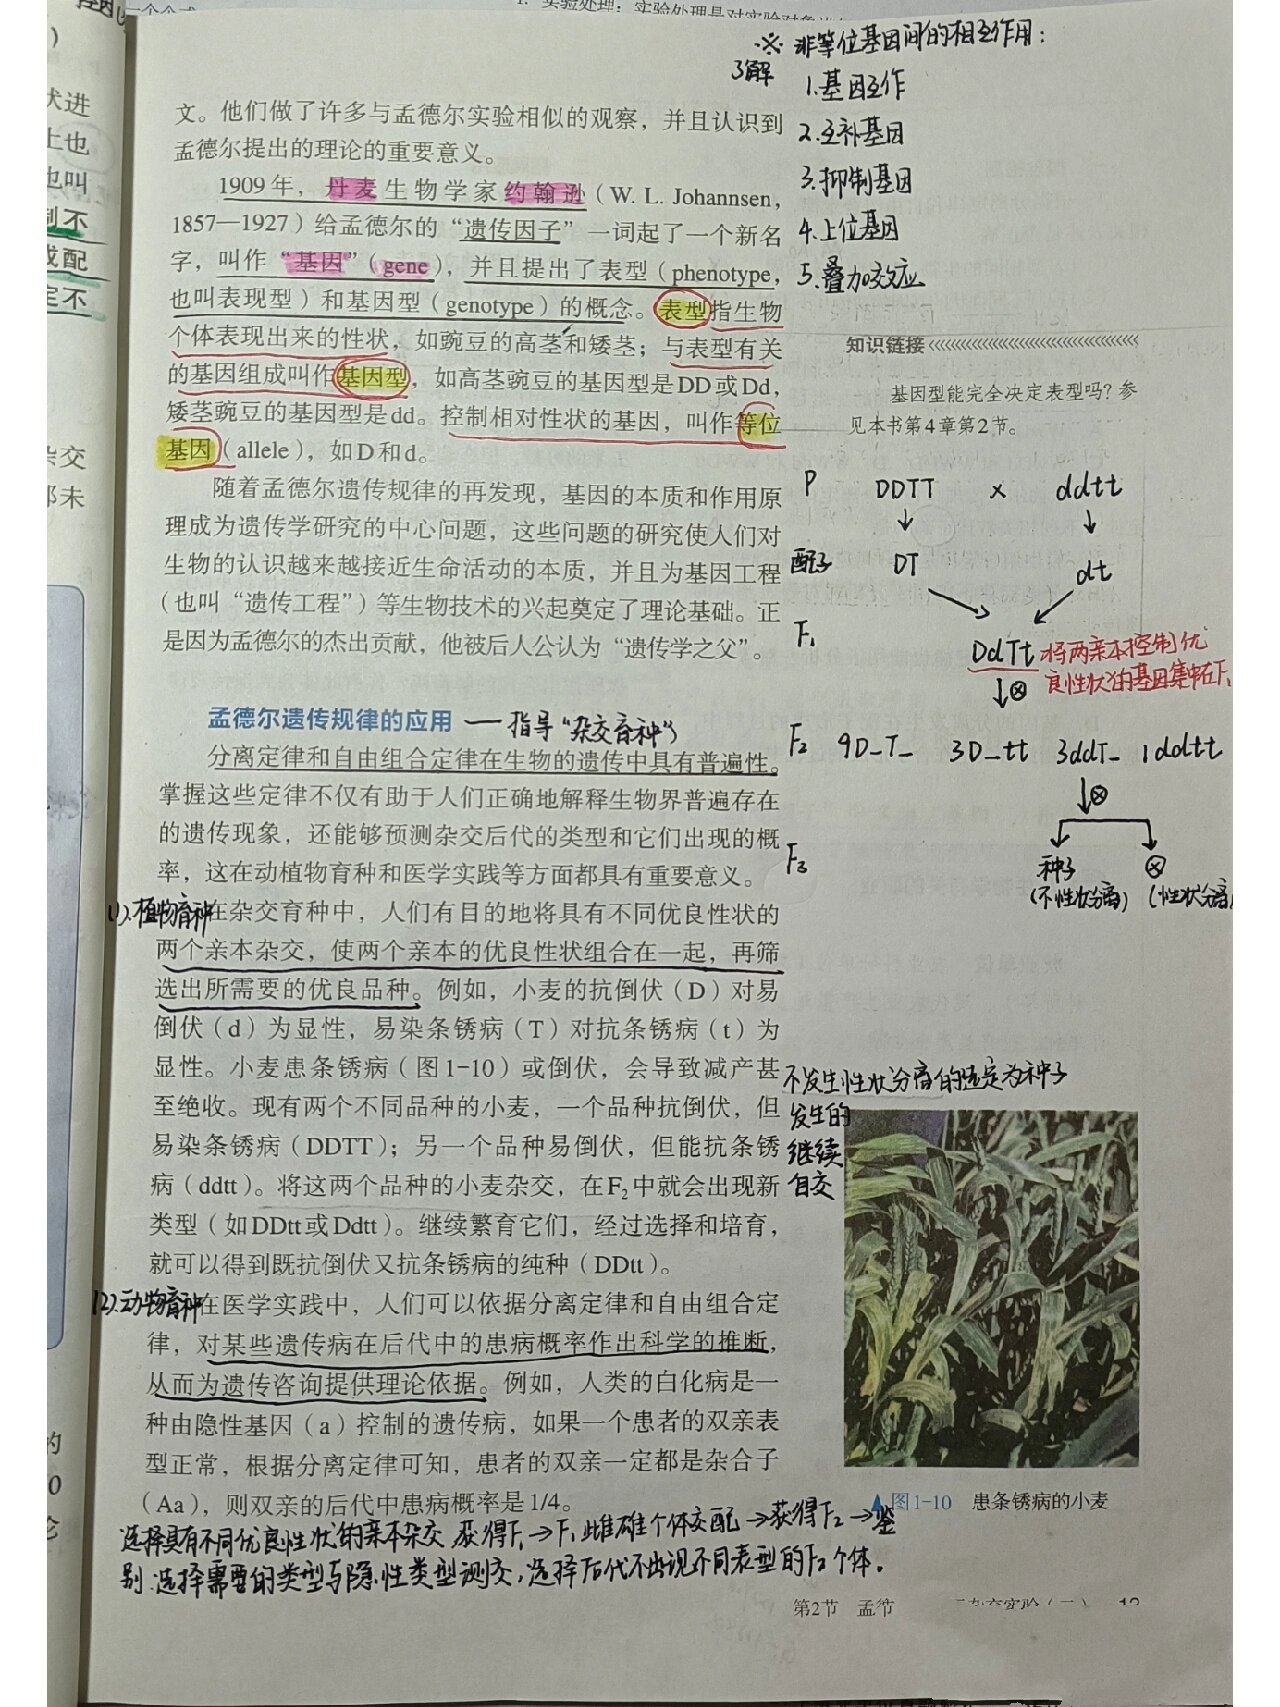 1. 实验处理：实验处理是对实验对象
)
状进
上也
也叫
制不
或配
定不
杂交
却未
的
0
论
※ 非等位基因间的相互作用：
了解
1.基因互作
2.互补基因
3.抑制基因
4.上位基因
5.叠加效应
文。他们做了许多与孟德尔实验相似的观察，并且认识到
孟德尔提出的理论的重要意义。
1909年，丹麦生物学家约翰逊（W. L. Johannsen，
1857—1927）给孟德尔的“遗传因子”一词起了一个新名
字，叫作“基因”（gene），并且提出了表型（phenotype，
也叫表现型）和基因型（genotype）的概念。表型指生物
个体表现出来的性状，如豌豆的高茎和矮茎；与表型有关
的基因组成叫作基因型，如高茎豌豆的基因型是DD或Dd，
矮茎豌豆的基因型是dd。控制相对性状的基因，叫作等位
基因（allele），如D和d。
随着孟德尔遗传规律的再发现，基因的本质和作用原
理成为遗传学研究的中心问题，这些问题的研究使人们对
生物的认识越来越接近生命活动的本质，并且为基因工程
（也叫“遗传工程”）等生物技术的兴起奠定了理论基础。正
是因为孟德尔的杰出贡献，他被后人公认为“遗传学之父”。
知识链接
基因型能完全决定表型吗？参
见本书第4章第2节。
P DDTT × ddtt
↓ ↓
配子 DT dt
F₁ DdTt 将两亲本控制优
良性状的基因集中在F₁
↓⊗
F₂ 9D_T_ 3D_tt 3ddT_ 1ddtt
↓⊗
F₃ 种子 ⊗
(不性状分离) (性状分离)
孟德尔遗传规律的应用 — 指导“杂交育种”
分离定律和自由组合定律在生物的遗传中具有普遍性。
掌握这些定律不仅有助于人们正确地解释生物界普遍存在
的遗传现象，还能够预测杂交后代的类型和它们出现的概
率，这在动植物育种和医学实践等方面都具有重要意义。
(1).植物育种
在杂交育种中，人们有目的地将具有不同优良性状的
两个亲本杂交，使两个亲本的优良性状组合在一起，再筛
选出所需要的优良品种。例如，小麦的抗倒伏（D）对易
倒伏（d）为显性，易染条锈病（T）对抗条锈病（t）为
显性。小麦患条锈病（图1-10）或倒伏，会导致减产甚
至绝收。现有两个不同品种的小麦，一个品种抗倒伏，但
易染条锈病（DDTT）；另一个品种易倒伏，但能抗条锈
病（ddtt）。将这两个品种的小麦杂交，在F₂中就会出现新
类型（如DDtt或Ddtt）。继续繁育它们，经过选择和培育，
就可以得到既抗倒伏又抗条锈病的纯种（DDtt）。
不发生性状分离的选定为种子
发生的
继续
自交
(2).动物育种
在医学实践中，人们可以依据分离定律和自由组合定
律，对某些遗传病在后代中的患病概率作出科学的推断，
从而为遗传咨询提供理论依据。例如，人类的白化病是一
种由隐性基因（a）控制的遗传病，如果一个患者的双亲表
型正常，根据分离定律可知，患者的双亲一定都是杂合子
（Aa），则双亲的后代中患病概率是1/4。
▲图1-10 患条锈病的小麦
选择具有不同优良性状的亲本杂交,获得F₁→F₁雌雄个体交配→获得F₂→鉴
别.选择需要的类型与隐性类型测交,选择后代不出现不同表型的F₂个体.
第2节 孟